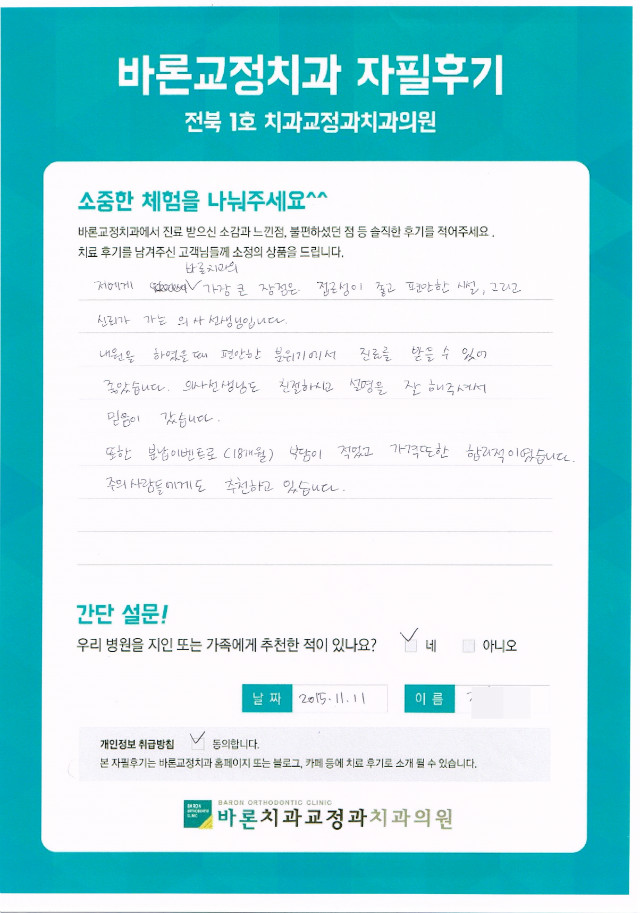 바론교정치과 자필후기
전북 1호 치과교정과치과의원
소중한 체험을 나눠주세요^^
바론교정치과에서 진료 받으신 소감과 느낀점, 불편하셨던 점 등 솔직한 후기를 적어주세요.
치료 후기를 남겨주신 고객님들께 소정의 상품을 드립니다.
바론치과의
저에게 가장 큰 장점은 접근성이 좋고 편안한 시설, 그리고
신뢰가 가는 의사선생님입니다.
내원을 하였을때 편안한 분위기에서 진료를 받을 수 있어
좋았습니다. 의사선생님도 친절하시고 설명을 잘 해주셔서
믿음이 갔습니다.
또한 분납이벤트로 (18개월) 부담이 적었고 가격또한 합리적이였습니다.
주의사람들에게도 추천하고 있습니다.
간단 설문!
우리 병원을 지인 또는 가족에게 추천한 적이 있나요? 네 아니오
날짜 2015.11.11 이름
개인정보 취급방침 동의합니다.
본 자필후기는 바론교정치과 홈페이지 또는 블로그, 카페 등에 치료 후기로 소개 될 수 있습니다.
BARON ORTHODONTIC CLINIC
BARON ORTHODONTIC CLINIC
바론치과교정과치과의원